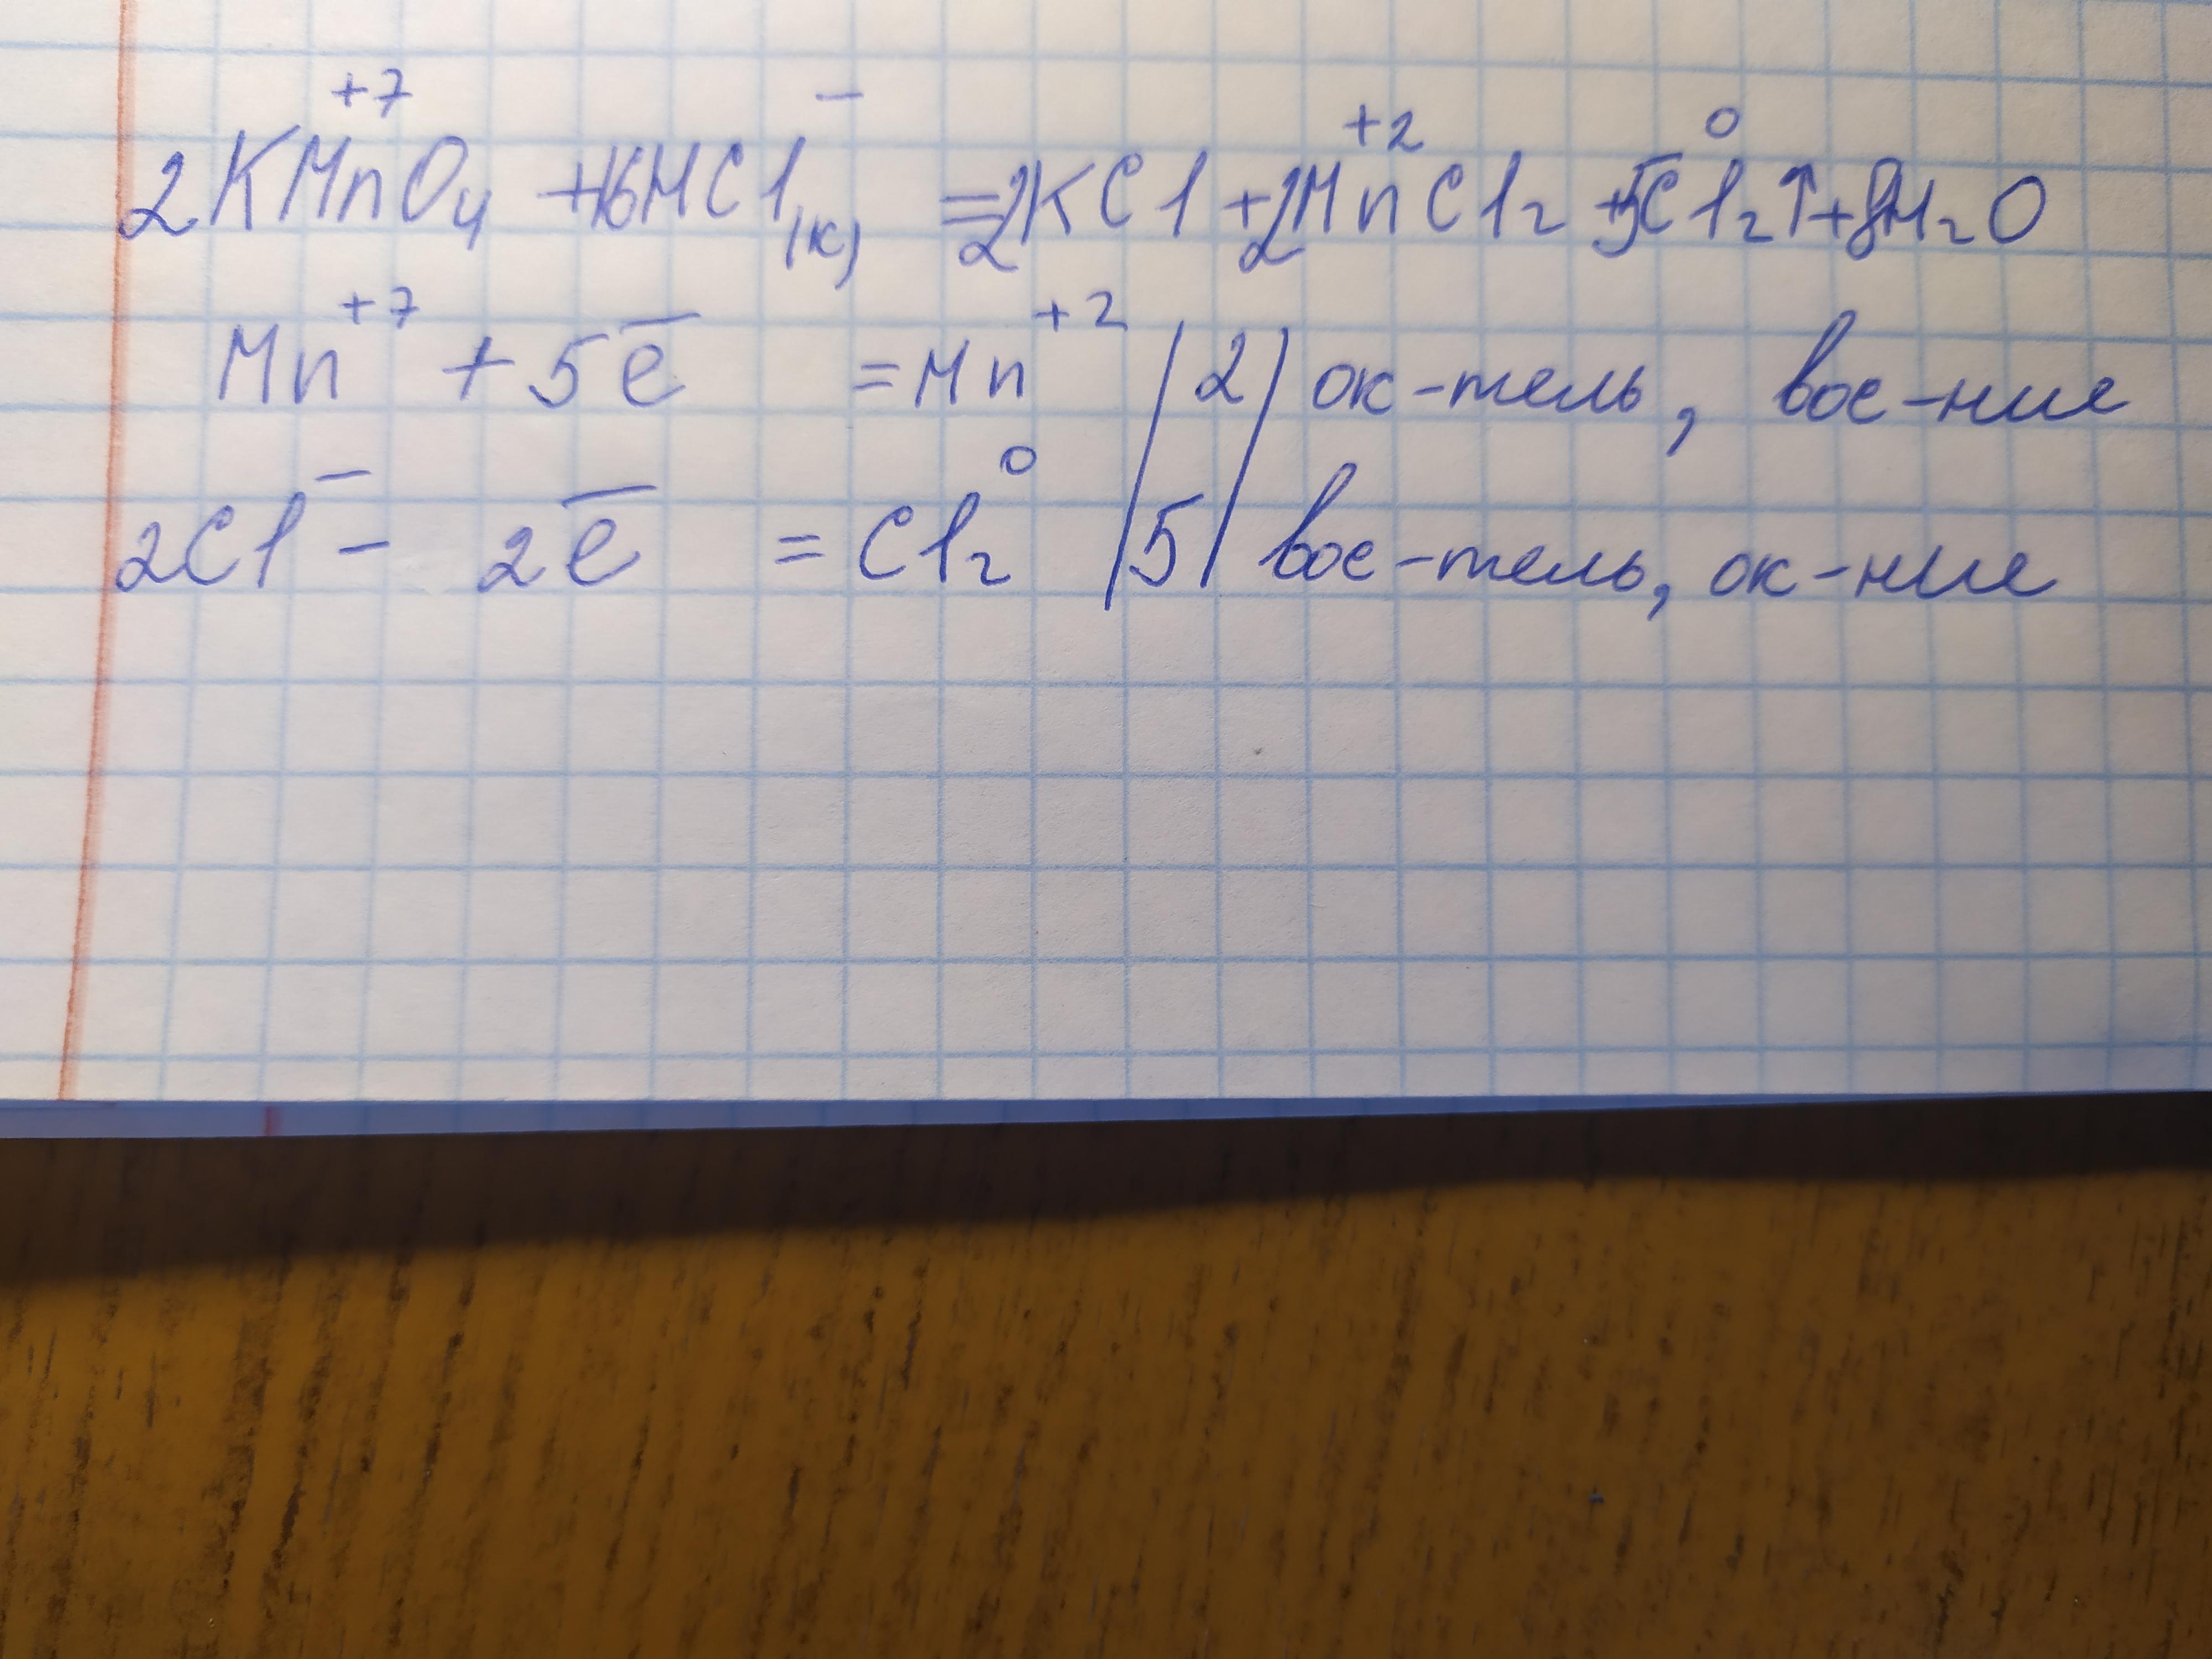 2KMn⁺⁷O₄ + 16HCl⁻₍к₎ = 2KCl + 2Mn⁺²Cl₂ + 5Cl⁰₂↑ + 8H₂O
Mn⁺⁷ + 5e̅ = Mn⁺² | 2 | ок-тель, вос-ние
2Cl⁻ - 2e̅ = Cl₂⁰ | 5 | вос-тель, ок-ние